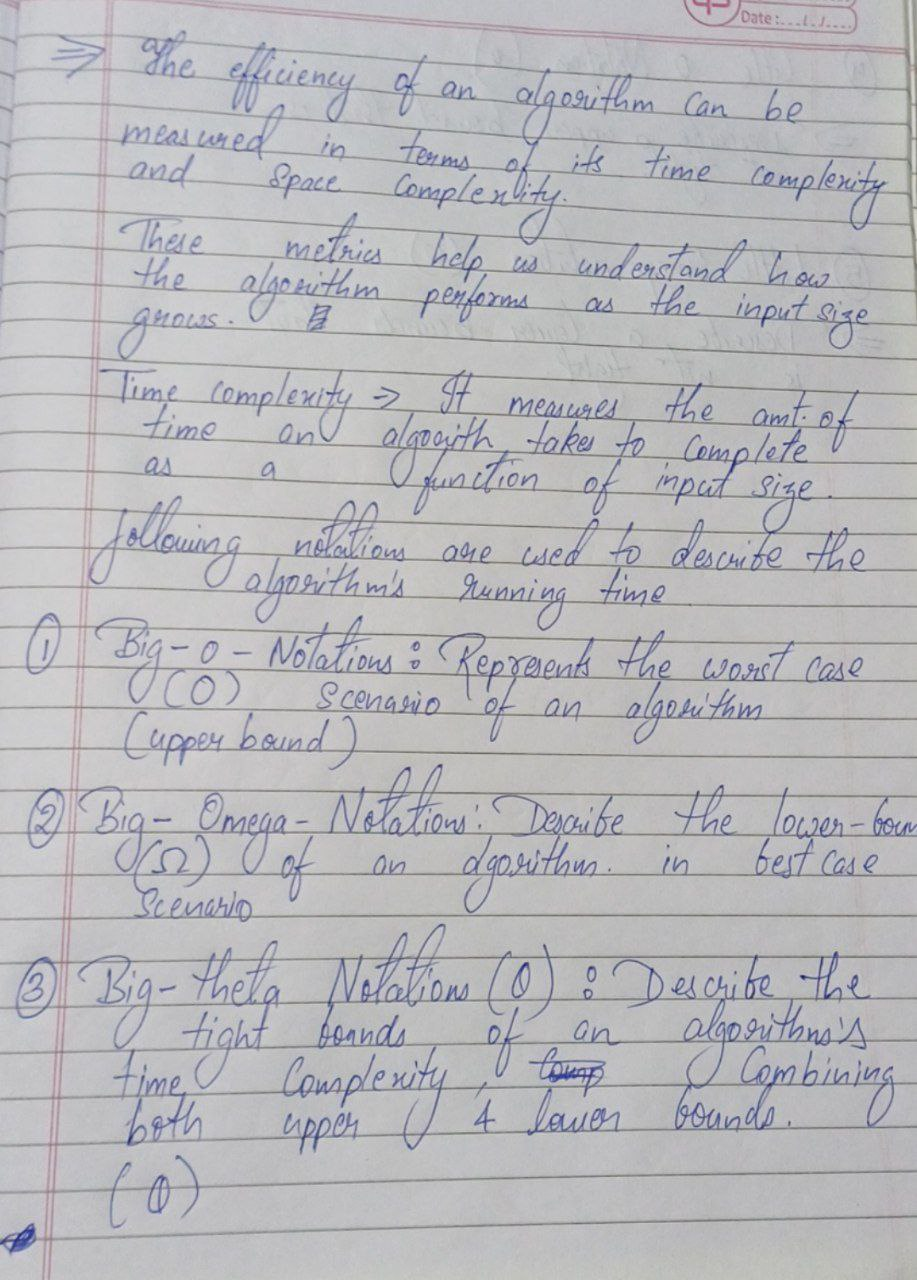 Date:.../.../....
⇒ The efficiency of an algorithm can be
measured in terms of its time complexity
and space complexity.
These metrics help us understand how
the algorithm performs as the input size
grows.
Time complexity → It measures the amt. of
time an algoorith takes to complete
as a function of input size.
following notations are used to describe the
algorithm's running time
① Big-O-Notations: Represents the worst case
(O) scenario of an algorithm
(upper bound)
② Big-Omega-Notations: Describe the lower-boun
(Ω) of an algorithm. in best case
scenario
③ Big-theta Notations (θ): Describe the
tight bounds of an algorithms's
time complexity, combining
both upper & lower bounds.
(θ)